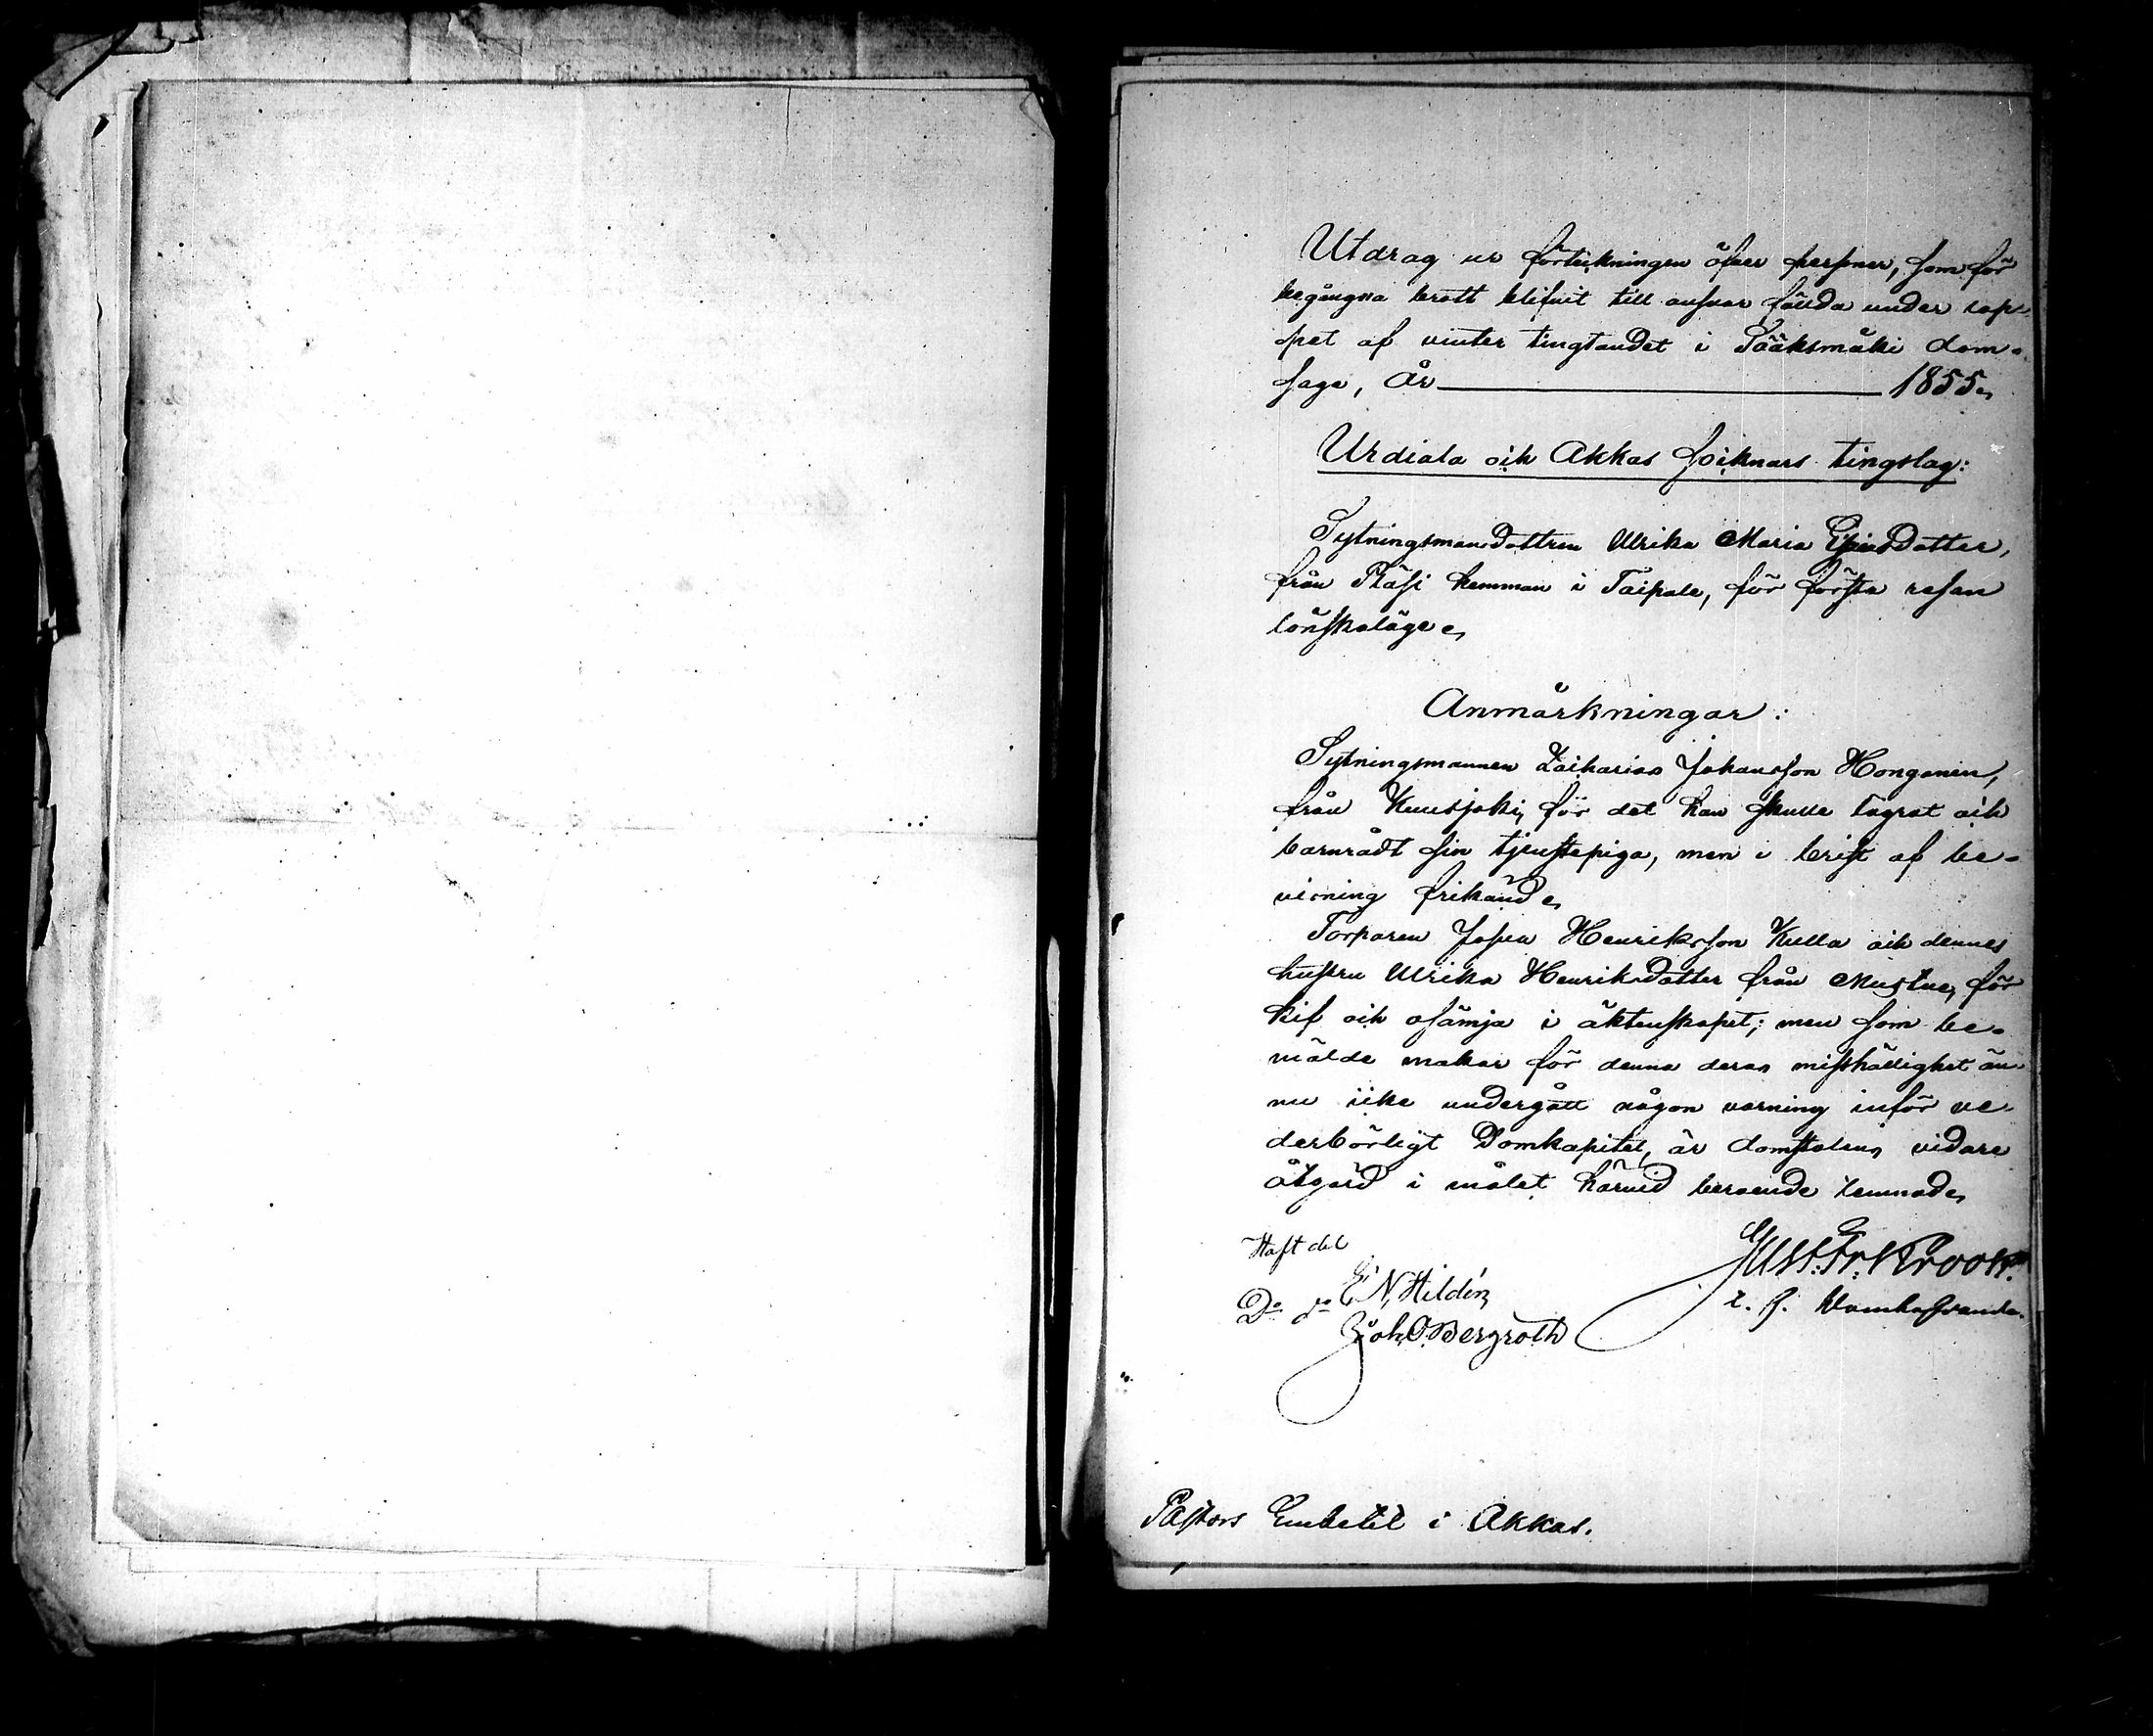 Utdrag ur förteckningen öfver personer, som för
begångna brott blifvit till ansvar fällda under lop-
pet af vinter tingtandet i Sääksmäki dom-
saga, år 1855.
Urdiala och Akkas socknars tingslag:
Sytningsmansdottren Ulrika Maria
från Pläsi hemman i Taipale, för första resan
lönskaläge.
Anmärkningar:
Sytningsmannen Zacharias Johansson Honganen,
från Kuusjoki, för det han skulle lägrat och
barnrådt sin tjenstepiga, men i brist af be-
visning frikänd.
Torparen Josua Henriksson Kulla och dennes
hustru Ulrika Henriksdotter från Mustue, för
kif och osämja i äktenskapet; men som be-
mälde makar för denna deras misshällighet än-
nu icke undergått någon varning inför ve-
derbörligt Domkapitel, är domstolens vidare
åtgärd i målet härvid beroende lemnad.
Haft del
E N Hildén
Do do
Joh. O. Bergroth
Gust. Fr. Krook.
t. f. Domhafvande.
Pastors Embetet i Akkas.